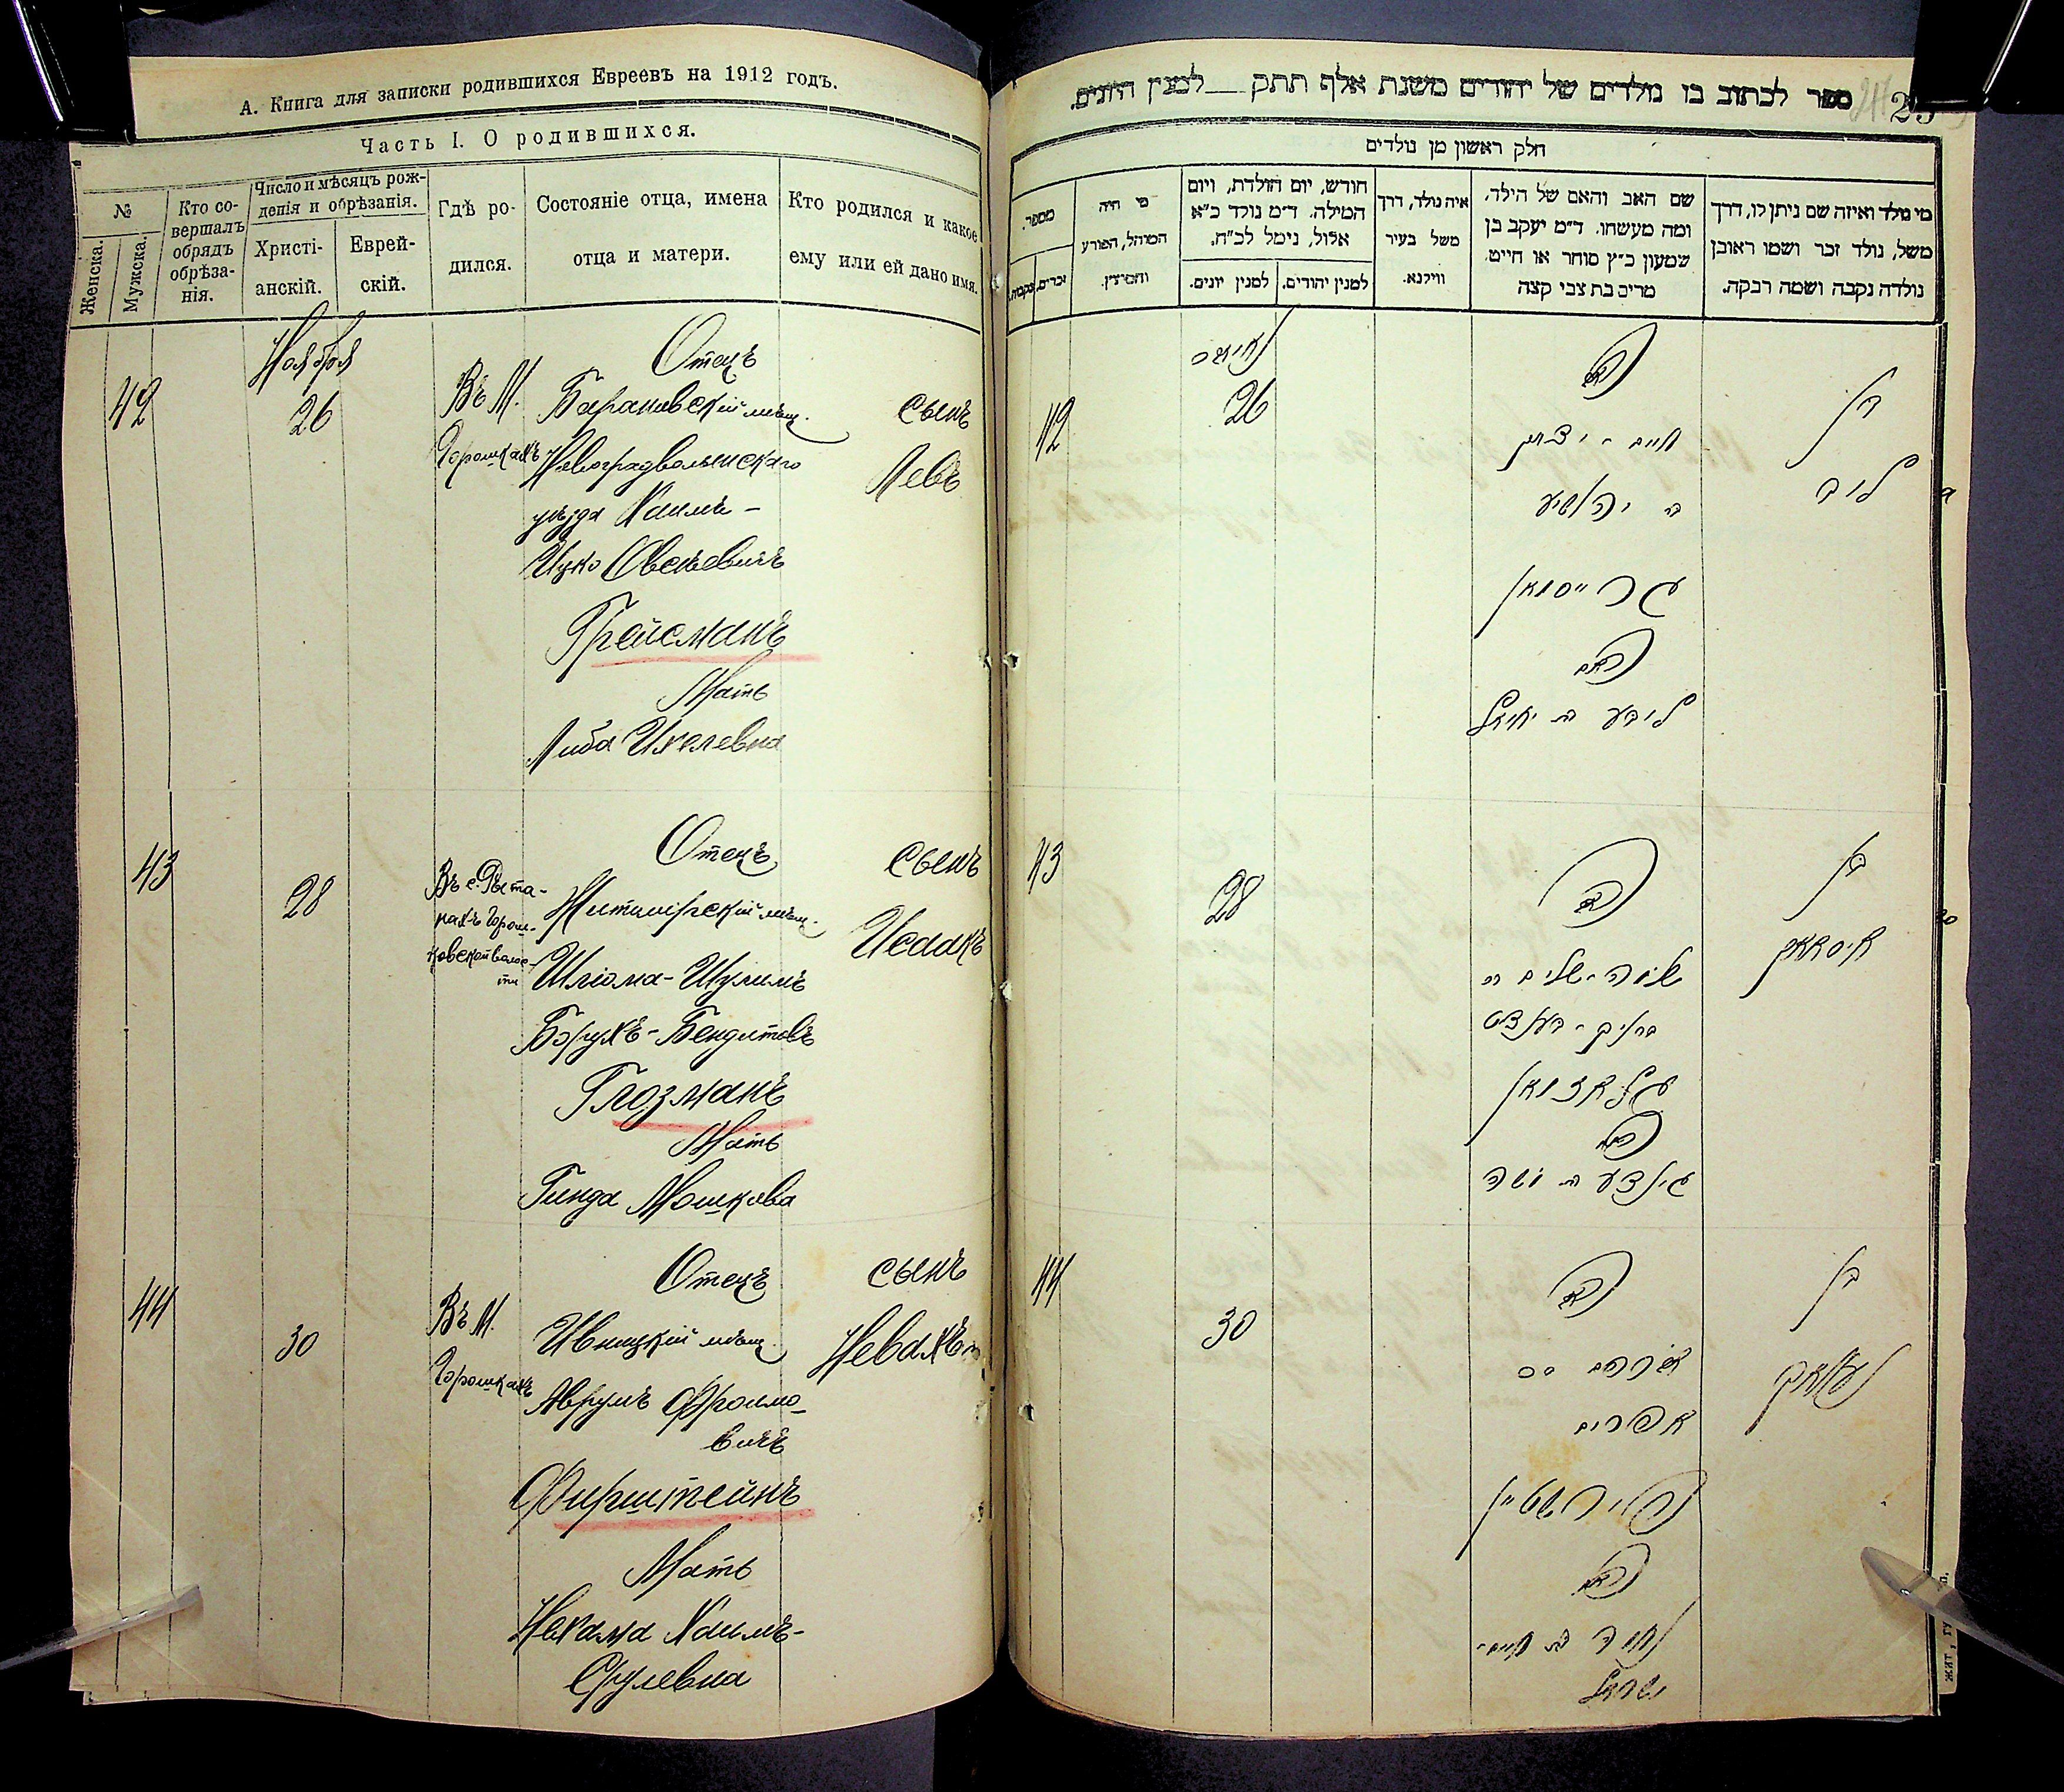 А. Книга для записки родившихся Евреевъ на 1912 годъ.
Часть I. О родившихся.
№
Женска.
Мужска.
Кто со-
вершалъ
обрядъ
обрѣза-
нія.
Число и мѣсяцъ рож-
денія и обрѣзанія.
Христі-
анскій.
Еврей-
скій.
Гдѣ ро-
дился.
Состояніе отца, имена
отца и матери.
Кто родился и какое
ему или ей дано имя.
Ноября
42
26
Въ М.
Горошкахъ
Отецъ
Барановскій мѣщ.
Новоградволынскаго
уѣзда Хаимъ-
Ицко Овсеевичъ
Грейсманъ
Мать
Либа Ихелевна
сынъ
Левъ
43
28
Въ с.
Горош-
ковской волос-
ти
Отецъ
Житомірскій мѣщ.
Шлiома-Шулимъ
Борухъ-Бендитовъ
Глозманъ
Мать
Гинда Мошкова
сынъ
Исаакъ
44
30
Въ М.
Горошкахъ
Отецъ
Ивницкій мѣщ.
Аврумъ Фроимо-
вичъ
Фирштейнъ
Мать
Нехама Хаимъ-
Срулевна
сынъ
Невахъ
ספר לכתוב בו נולדים של יהודים משנת אלף תתק__למנין היונים.
חלק ראשון מן נולדים
מי נולד ואיזה שם ניתן לו, דרך
משל, נולד זכר ושמו ראובן
נולדה נקבה ושמה רבקה.
שם האב והאם של הילד,
ומה מעשהו. ד"מ יעקב בן
שמעון כ"ץ סוחר או חייט,
מרים בת צבי קצה
איה נולד, דרך
משל בעיר
ווילנא.
חודש, יום הולדת, ויום
המילה. ד"מ נולד כ"א
אלול, נימל לכ"ח.
למנין יהודים.
למנין יונים.
מי היה
המוהל, הפורע
והמוצץ.
מספר.
זכרים.
נקבות.
בן
ליב
האב
חיים - יצחק
ב יהושיע
גרייסמאן
האם
ליבע בת יחיאל
26
42
בן
איסאאק
האב
שלמה-שלום ב
ברוך - בענדיט
גלאזמאן
האם
גינדע בת משה
28
43
בן
האב
אברהם בן
אפרים
פירשטיין
האם
נחמה בת חיים-
ישראל
30
44